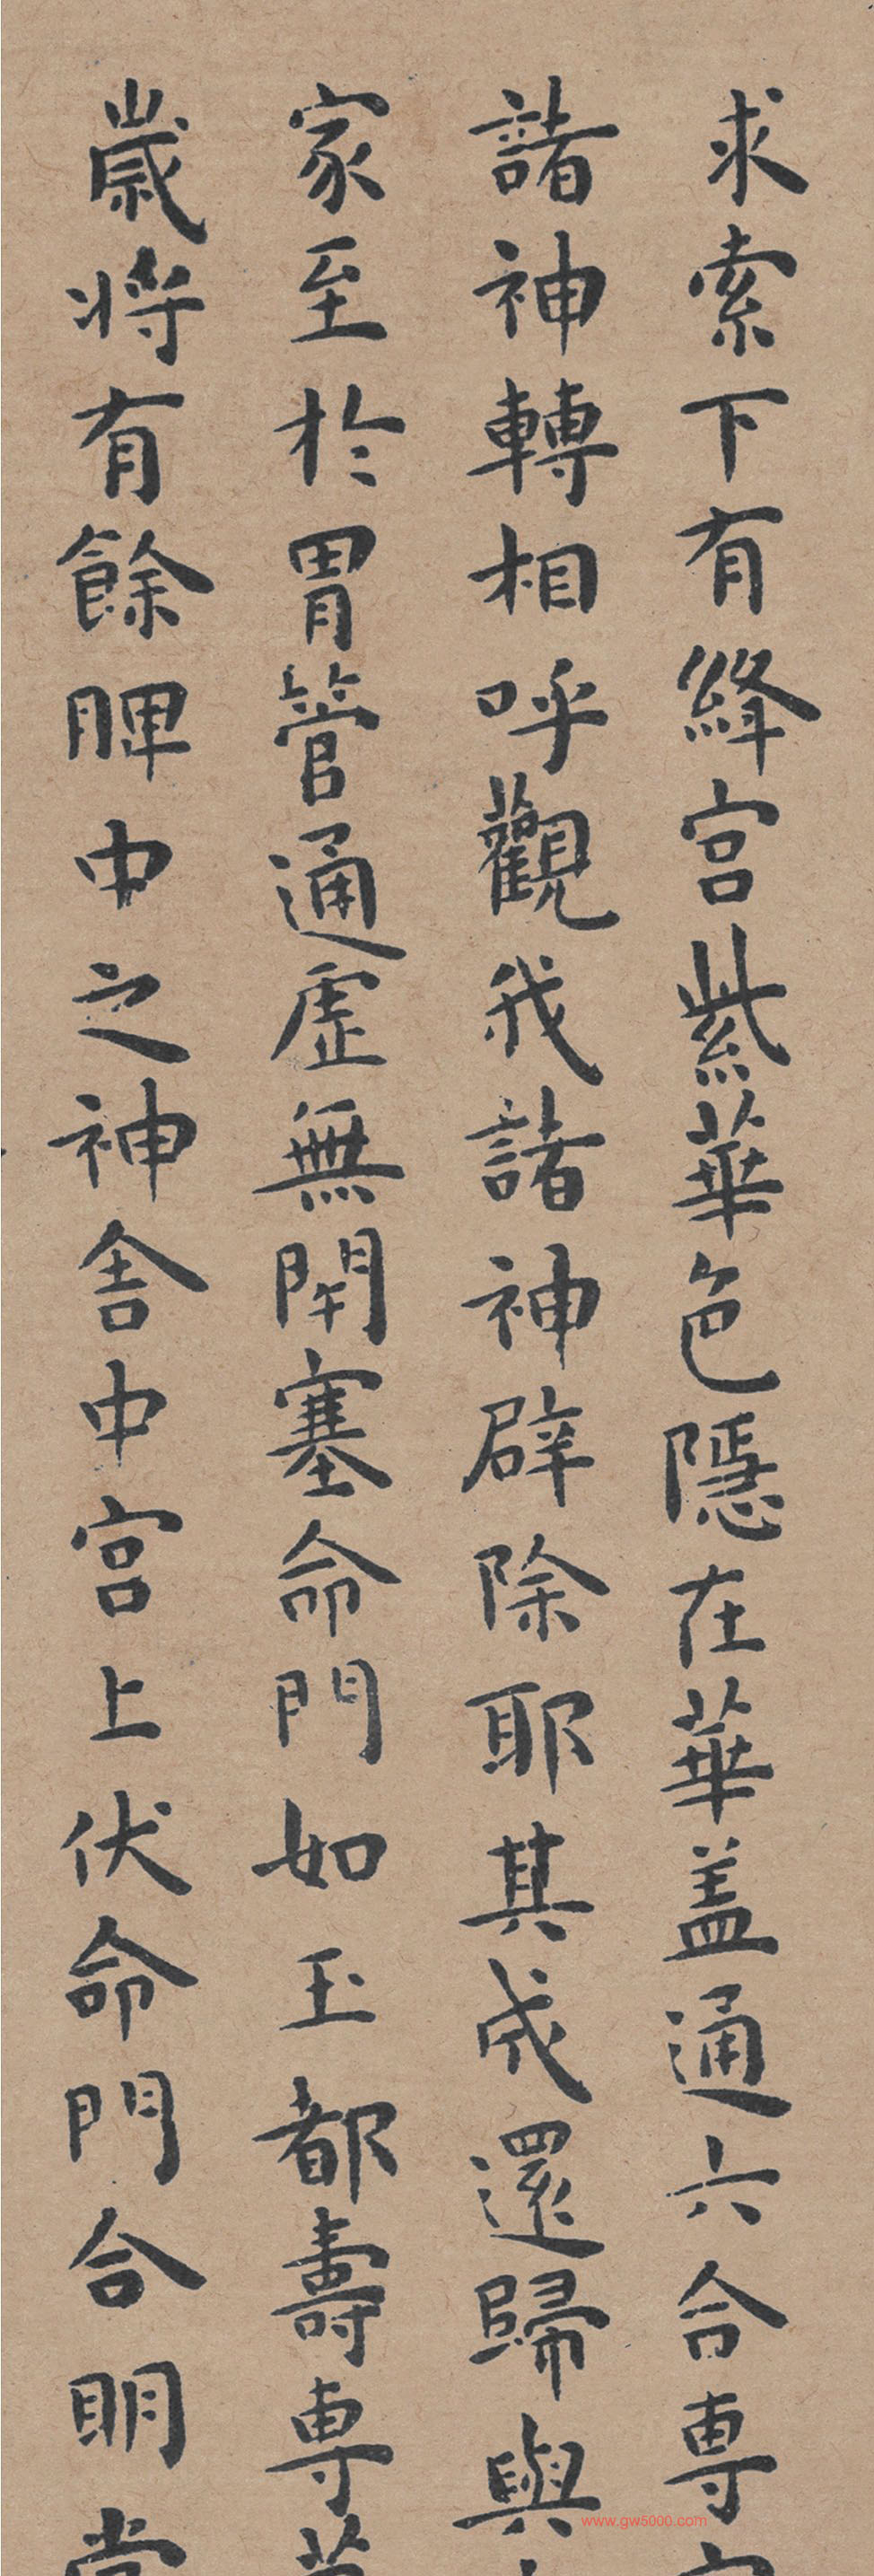 求索下有絳宫紫華色隱在華盖通六合專
諸神轉相呼觀我諸神辟除耶其成還歸與
家至於胃管通虛無閇塞命門如玉都壽專
歳将有餘脾中之神舎中宫上伏命門合明
www.gw5000.com